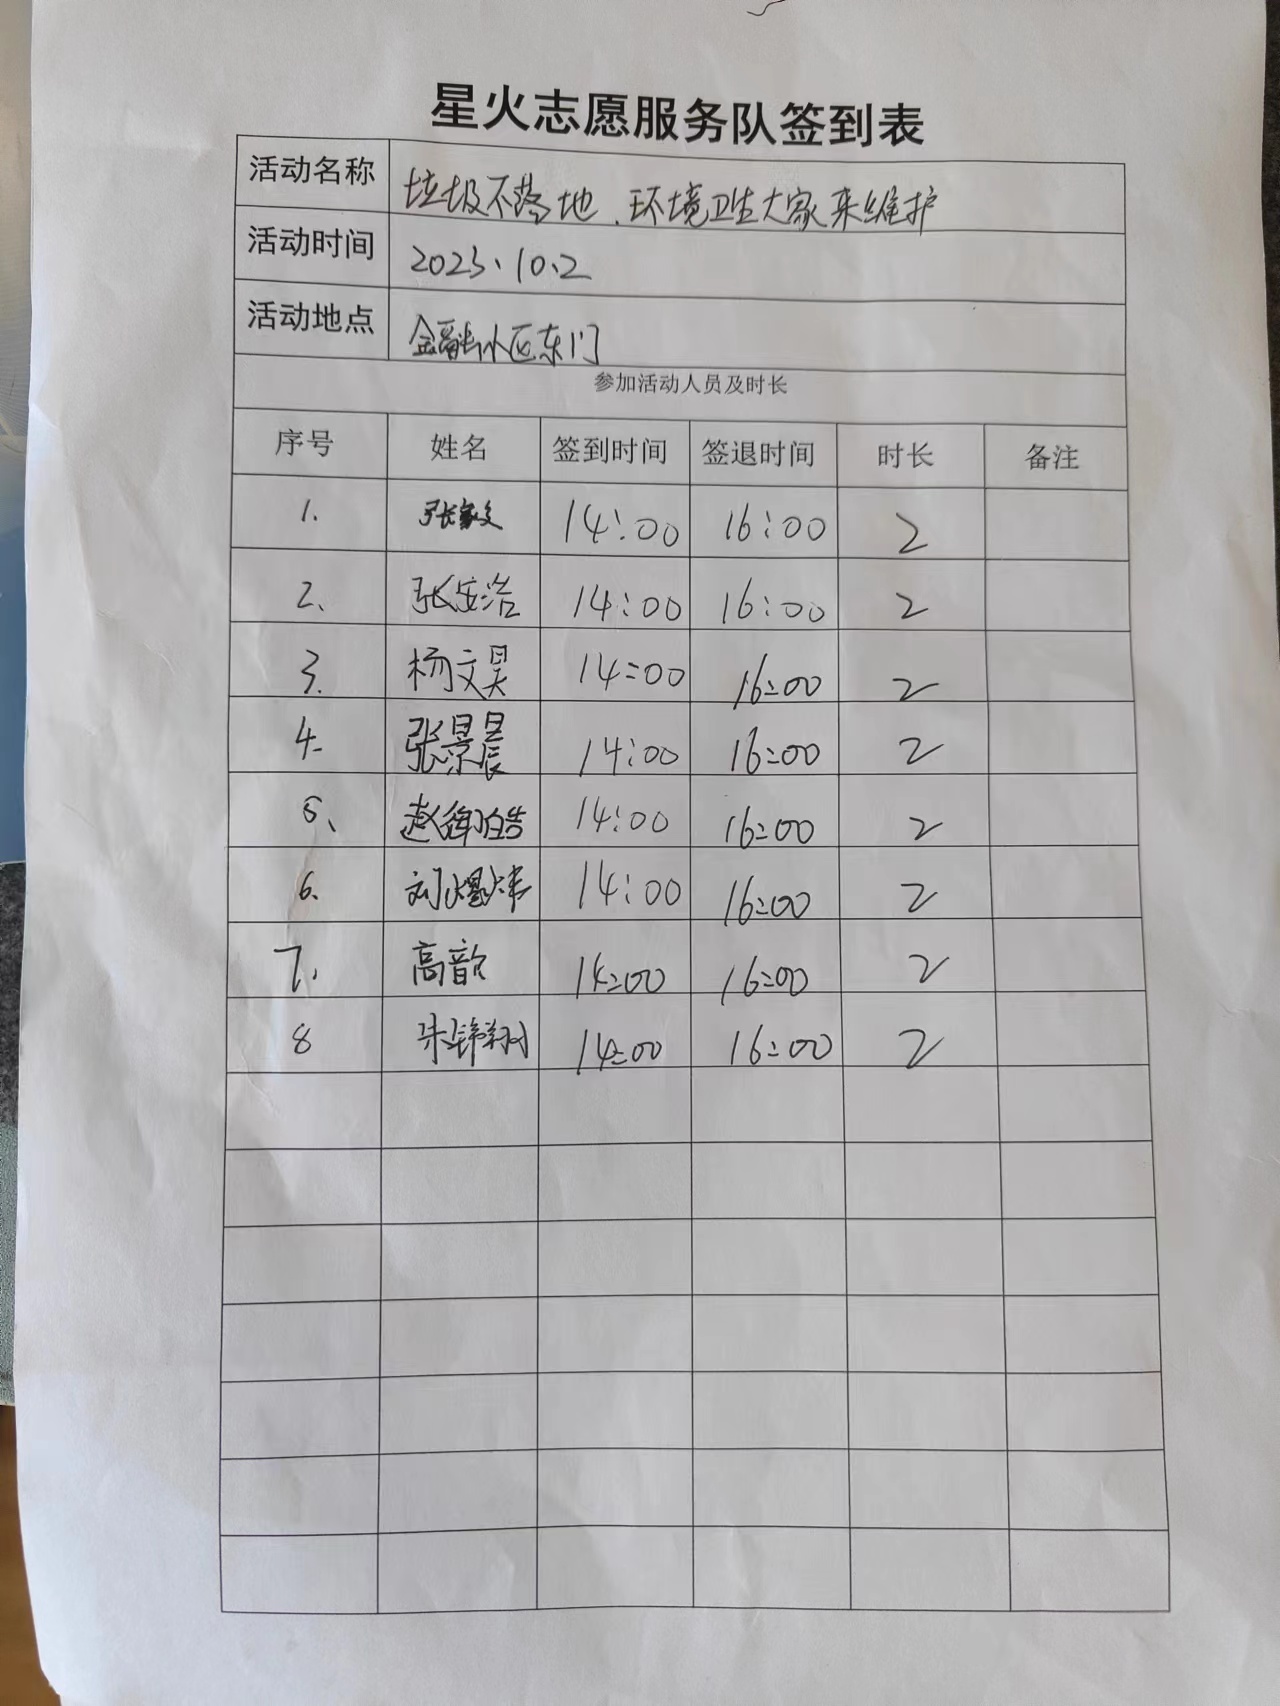 星火志愿服务队签到表
活动名称 垃圾不落地、环境卫生大家来维护
活动时间 2023、10、2
活动地点 金融小区东门
参加活动人员及时长
序号 姓名 签到时间 签退时间 时长 备注
1. 14:00 16:00 2
2、 张宝浩 14:00 16:00 2
3. 杨文昊 14:00 16:00 2
4. 张景晨 14:00 16:00 2
5、 14:00 16:00 2
6. 14:00 16:00 2
7. 高歆 14:00 16:00 2
8 14:00 16:00 2